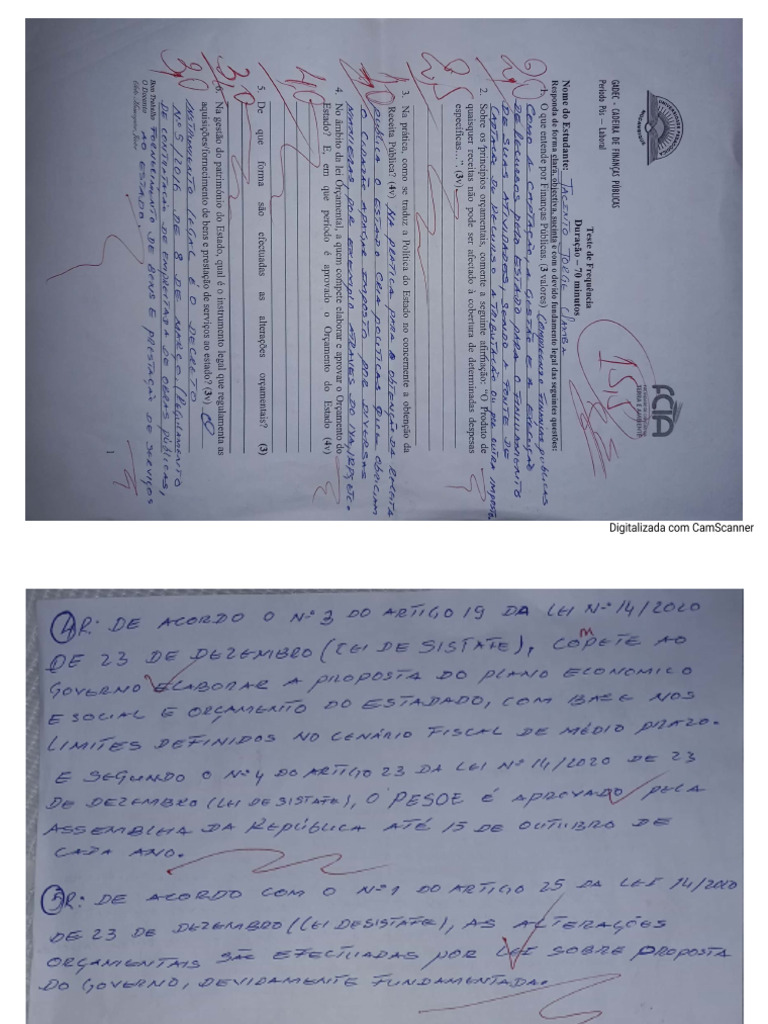 GADEC - CADEIRA DE FINANÇAS PÚBLICAS
Período Pós - Laboral
FCTA
Teste de Frequência
Duração – 70 minutos
Nome do Estudante: JACINTO JORGE
Responda de forma clara, objectiva, sucinta e com o devido fundamento legal das seguintes questões:
1. O que entende por Finanças Públicas. (3 valores) COMPREENDO FINANÇAS PÚBLICAS
COMO A CAPTAÇÃO, A GESTÃO E A EXECUÇÃO
DE RECURSOS PELO ESTADO PARA O FUNCIONAMENTO
DE SUAS ATIVIDADES, SENDO A FONTE DE
CAPTAÇÃO DE RECURSO A TRIBUTAÇÃO OU POR OUTRA IMPOSTO
2. Sobre os princípios orçamentais, comente a seguinte afirmação: “O Produto de
quaisquer receitas não pode ser afectado à cobertura de determinadas despesas
específicas…”. (3v)
3. Na prática, como se traduz a Política do Estado no concernente a obtenção da
Receita Pública? (4v) NA PRATICA PARA A OBTENÇÃO DA RECEITA
PUBLICA O ESTADO CRIA POLITICAS QUE OBRIGAM
O CIDADÃO APAGAR IMPOSTO POR DIVERSAS
NATUREZAS POR EXEMPLO ATRAVES DO IVA, IRPS, ETC.
4. No âmbito da lei Orçamental, a quem compete elaborar e aprovar o Orçamento do
Estado? E, em que período é aprovado o Orçamento do Estado (4v)
5. De que forma são efectuadas as alterações orçamentais? (3)
6. Na gestão do património do Estado, qual é o instrumento legal que regulamenta as
aquisições/fornecimento de bens e prestação de serviços ao estado? (3v) O
INSTRUMENTO LEGAL É O DECRETO
Nº 5/2016 DE 8 DE MARÇO (REGULAMENTO
DE CONTRATAÇÃO DE EMPREITADA DE OBRAS PÚBLICAS,
FORNECIMENTO DE BENS E PRESTAÇÃO DE SERVIÇOS
AO ESTADO.
Bom Trabalho
O Docente
1
Digitalizada com CamScanner
4 R: DE ACORDO O Nº 3 DO ARTIGO 19 DA LEI Nº 14/2020
DE 23 DE DEZEMBRO (LEI DE SISTAFE), COMPETE AO
GOVERNO ELABORAR A PROPOSTA DO PLANO ECONOMICO
E SOCIAL E ORÇAMENTO DO ESTADADO, COM BASE NOS
LIMITES DEFINIDOS NO CENÁRIO FISCAL DE MÉDIO PRAZO.
E SEGUNDO O Nº 4 DO ARTIGO 23 DA LEI Nº 14/2020 DE 23
DE DEZEMBRO (LEI DE SISTAFE), O PESOE É APROVADO PELA
ASSEMBLEIA DA REPÚBLICA ATÉ 15 DE OUTUBRO DE
CADA ANO.
5 R: DE ACORDO COM O Nº 1 DO ARTIGO 25 DA LEI 14/2020
DE 23 DE DEZEMBRO (LEI DE SISTAFE), AS ALTERAÇÕES
ORÇAMENTAIS SÃO EFECTUADAS POR LEI SOBRE PROPOSTA
DO GOVERNO, DEVIDAMENTE FUNDAMENTADA.